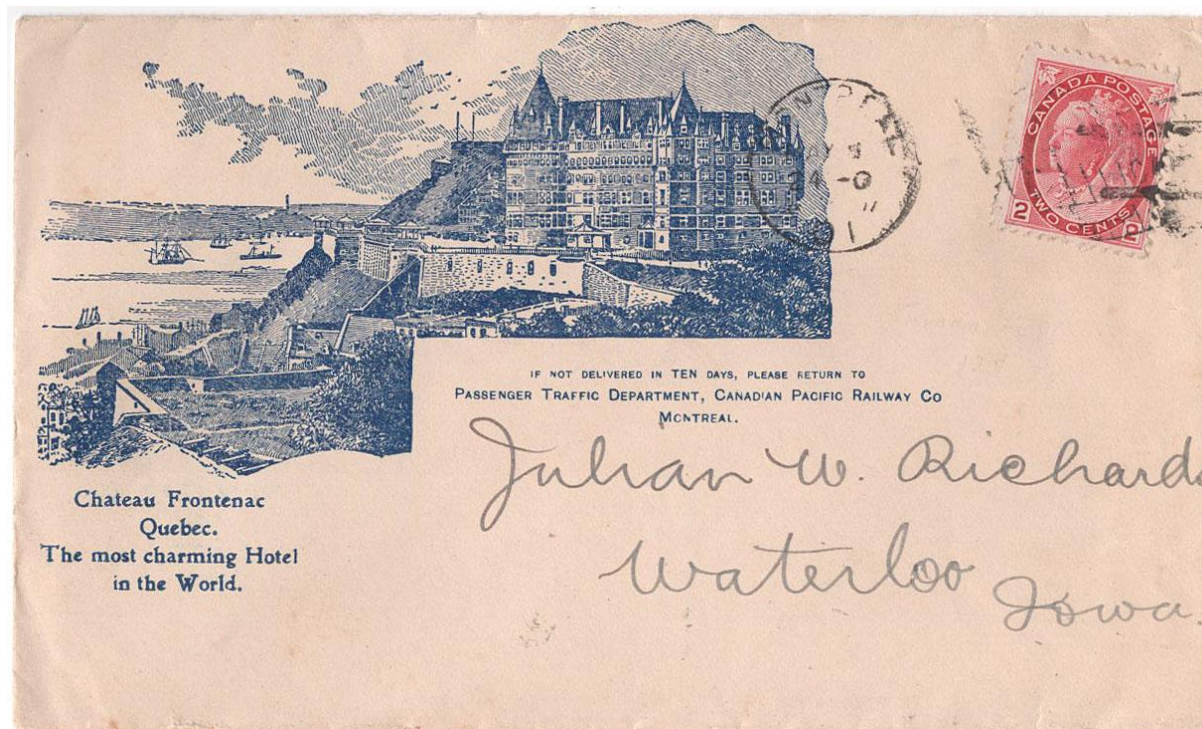 CANADA POSTAGE
2 TWO CENTS 2
24 - 0
1
IF NOT DELIVERED IN TEN DAYS, PLEASE RETURN TO
PASSENGER TRAFFIC DEPARTMENT, CANADIAN PACIFIC RAILWAY CO
MONTREAL.
Julian W. Richards
Waterloo
Iowa.
Chateau Frontenac
Quebec.
The most charming Hotel
in the World.